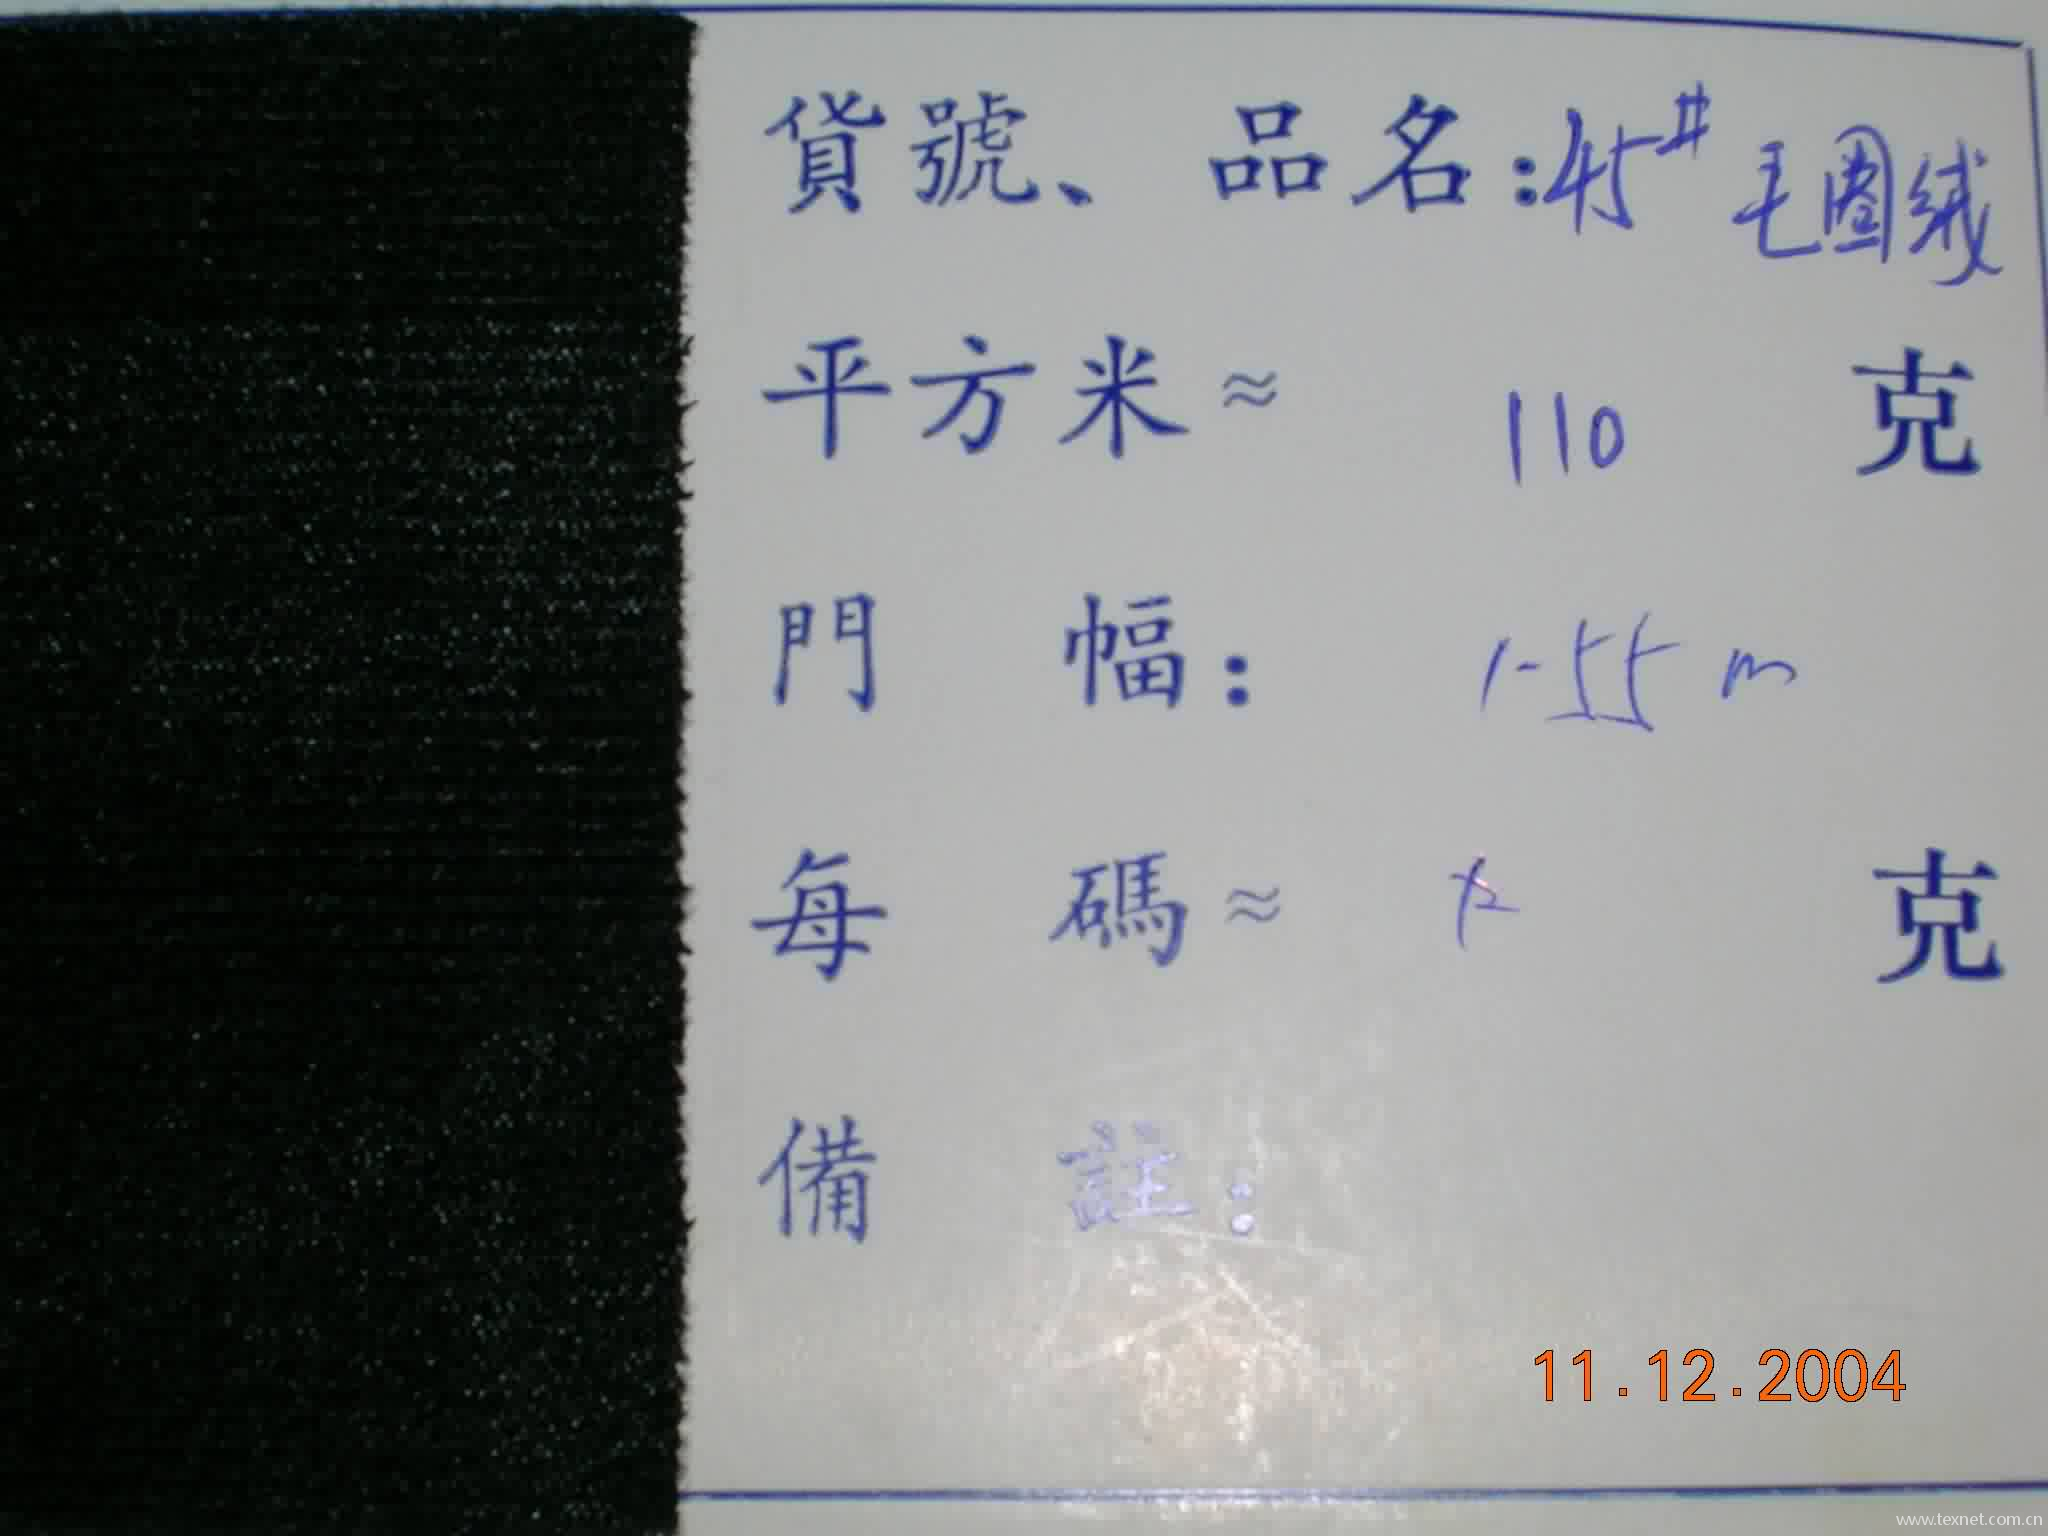 貨號、品名:45# 毛圈绒
平方米≈ 110 克
門幅: 1-55 m
每碼≈ 克
備註:
11.12.2004
www.texnet.com.cn